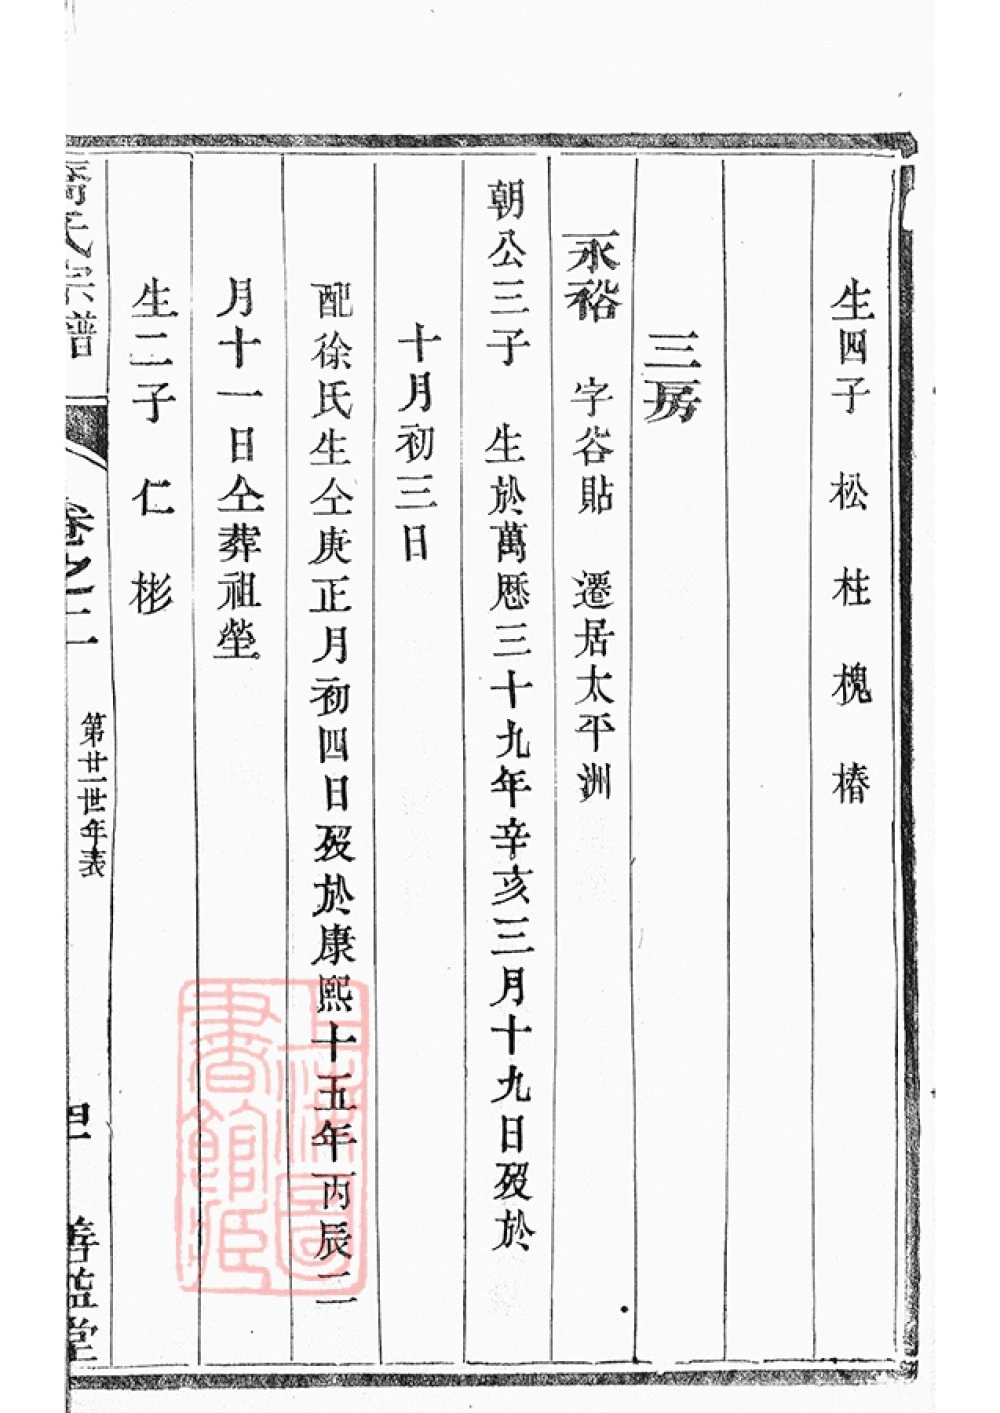 生四子 松 柱 槐 椿
三房
永裕 字谷貽 遷居太平洲
朝公三子 生於萬厯三十九年辛亥三月十九日歿於
十月初三日
配徐氏生仝庚正月初四日歿於康熙十五年丙辰二
月十一日仝葬祖塋
生二子 仁 彬
氏宗譜 卷之二 第廿一世年表 善 堂
上海圖
書館藏